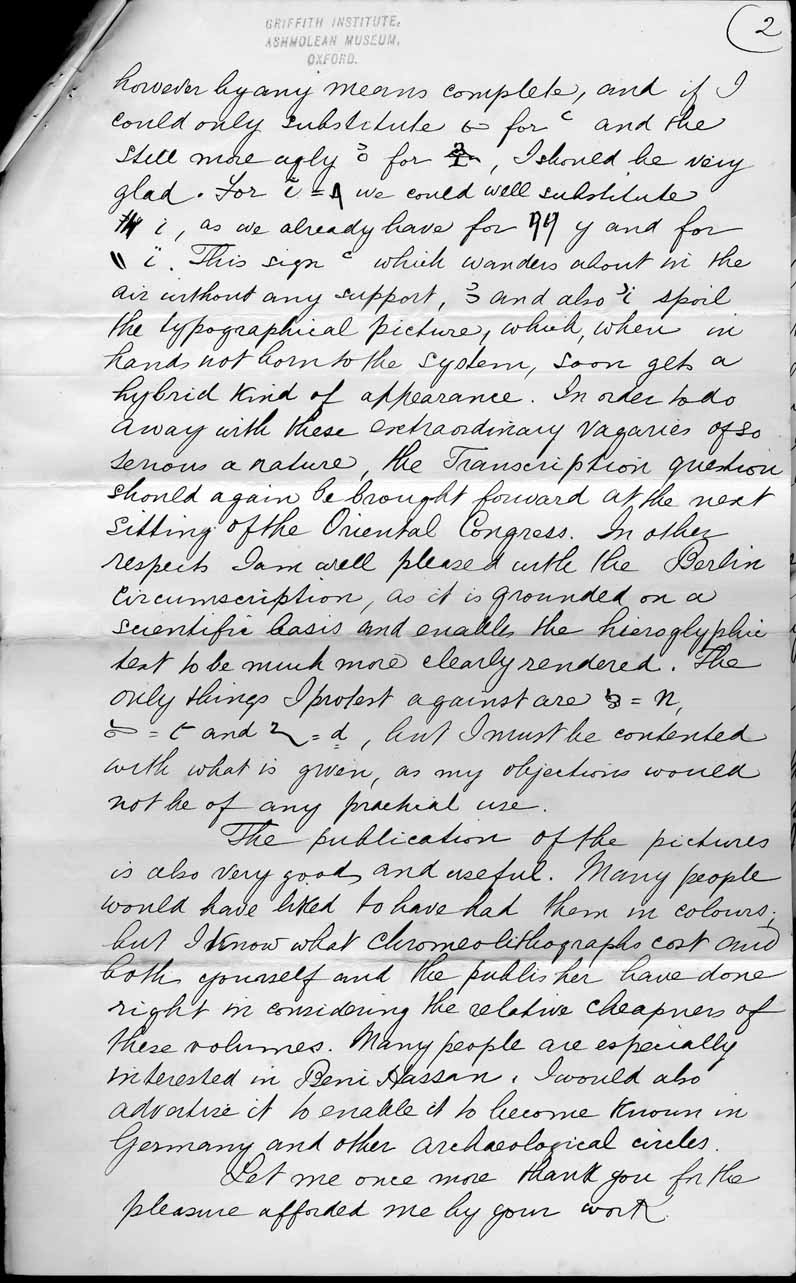 GRIFFITH INSTITUTE,
ASHMOLEAN MUSEUM,
OXFORD.
2
however by any means complete, and if I
could only substitute for ʿ and the
still more ugly ꜣ for, I should be very
glad. For we could well substitute
i, as we already have for 𓇌 y and for
\\ ï. This sign ʿ which wanders about in the
air without any support, ꜣ and also ꞽ spoil
the typographical picture, which, when in
hands not born to the system, soon gets a
hybrid kind of appearance. In order to do
away with these extraordinary vagaries of so
serious a nature, the Transcription question
should again be brought forward at the next
sitting of the Oriental Congress. In other
respects I am well pleased with the Berlin
circumscription, as it is grounded on a
scientific basis and enables the hieroglyphic
text to be much more clearly rendered. The
only things I protest against are
and = d, but I must be contented
with what is given, as my objections would
not be of any practical use.
The publication of the pictures
is also very good, and useful. Many people
would have liked to have had them in colours;
but I know what chromeolithographs cost and
both yourself and the publisher have done
right in considering the relative cheapness of
these volumes. Many people are especially
interested in Beni Hassan. I would also
advertize it to enable it to become known in
Germany and other archaeological circles.
Let me once more thank you for the
pleasure afforded me by your work.